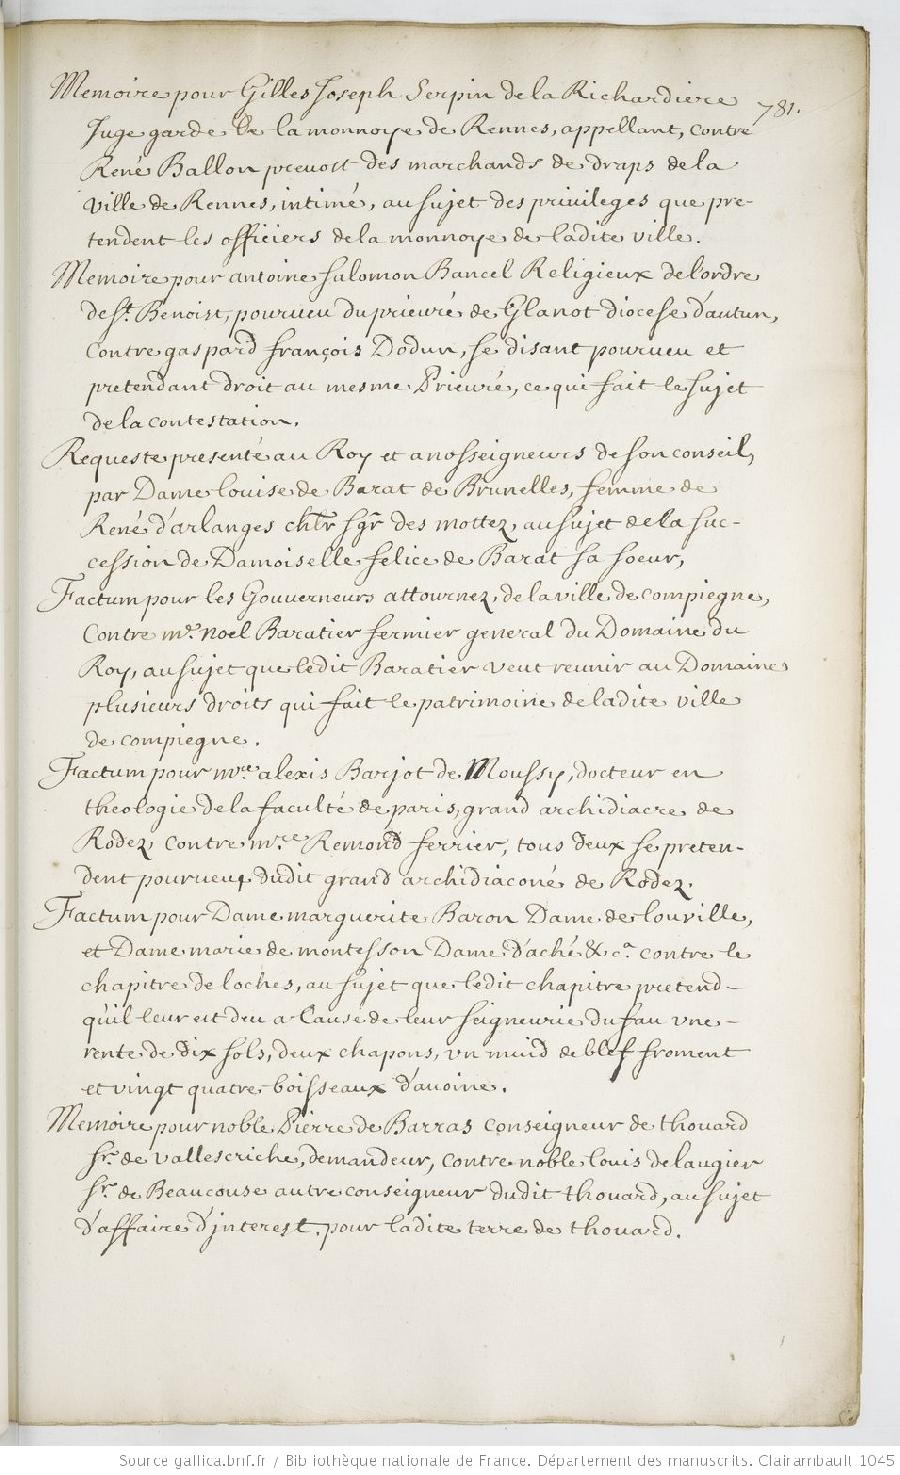 781.
Memoire pour Gilles Joseph Serpin de la Richardiere
Juge garde de la monnoye de Rennes, appellant, contre
René Ballon prevost des marchands de draps de la
ville de Rennes, intimé, au sujet des privileges que pre-
tendent les officiers de la monnoye de ladite ville.
Memoire pour antoine salomon Bancel Religieux de l'ordre
de St. Benoist, pourveu du prieuré de Glanot diocese d'autun,
Contre gaspard françois Dodun, se disant pourueu et
pretendant droit au mesme Prieuré, ce qui fait le sujet
de la contestation.
Requeste presenté au Roy et a nosseigneurs de son conseil,
par Dame louise de Barat de Brunelles, femme de
René d'arlanges chlr sgr des mottez, au sujet de la suc-
cession de Damoiselle felice de Barat sa soeur,
Factum pour les Gouverneurs attournez, de la ville de compiegne,
Contre me. noel Baratier fermier general du Domaine du
Roy, au sujet que ledit Baratier veut reunir au Domaine
plusieurs droits qui fait le patrimoine de ladite ville
de compiegne.
Factum pour mre. alexis Barjot de Moussy, docteur en
theologie de la faculté de paris, grand archidiacre de
Rodez, contre mre. Remond ferrier, tous deux se preten-
dent pourveus dudit grand archidiaconé de Rodez.
Factum pour Dame marguerite Baron Dame de louville,
et Dame marie de montesson Dame d'aché &ca. contre le
chapitre de loches, au sujet que ledit chapitre pretend-
qu'il leur est deu a Cause de leur seigneurie du fau vne-
rente de dix sols, deux chapons, vn muid de blef froment
et vingt quatre boisseaux d'auoine.
Memoire pour noble Pierre de Barras conseigneur de thouard
sr. de vallescriche, demandeur, contre noble louis de laugier
sr. de Beaucouse autre conseigneur dudit thouard, au sujet
d'affaire d'jnterest. pour ladite terre de thouard.
Source gallica.bnf.fr / Bibliothèque nationale de France. Département des manuscrits. Clairambault 1045